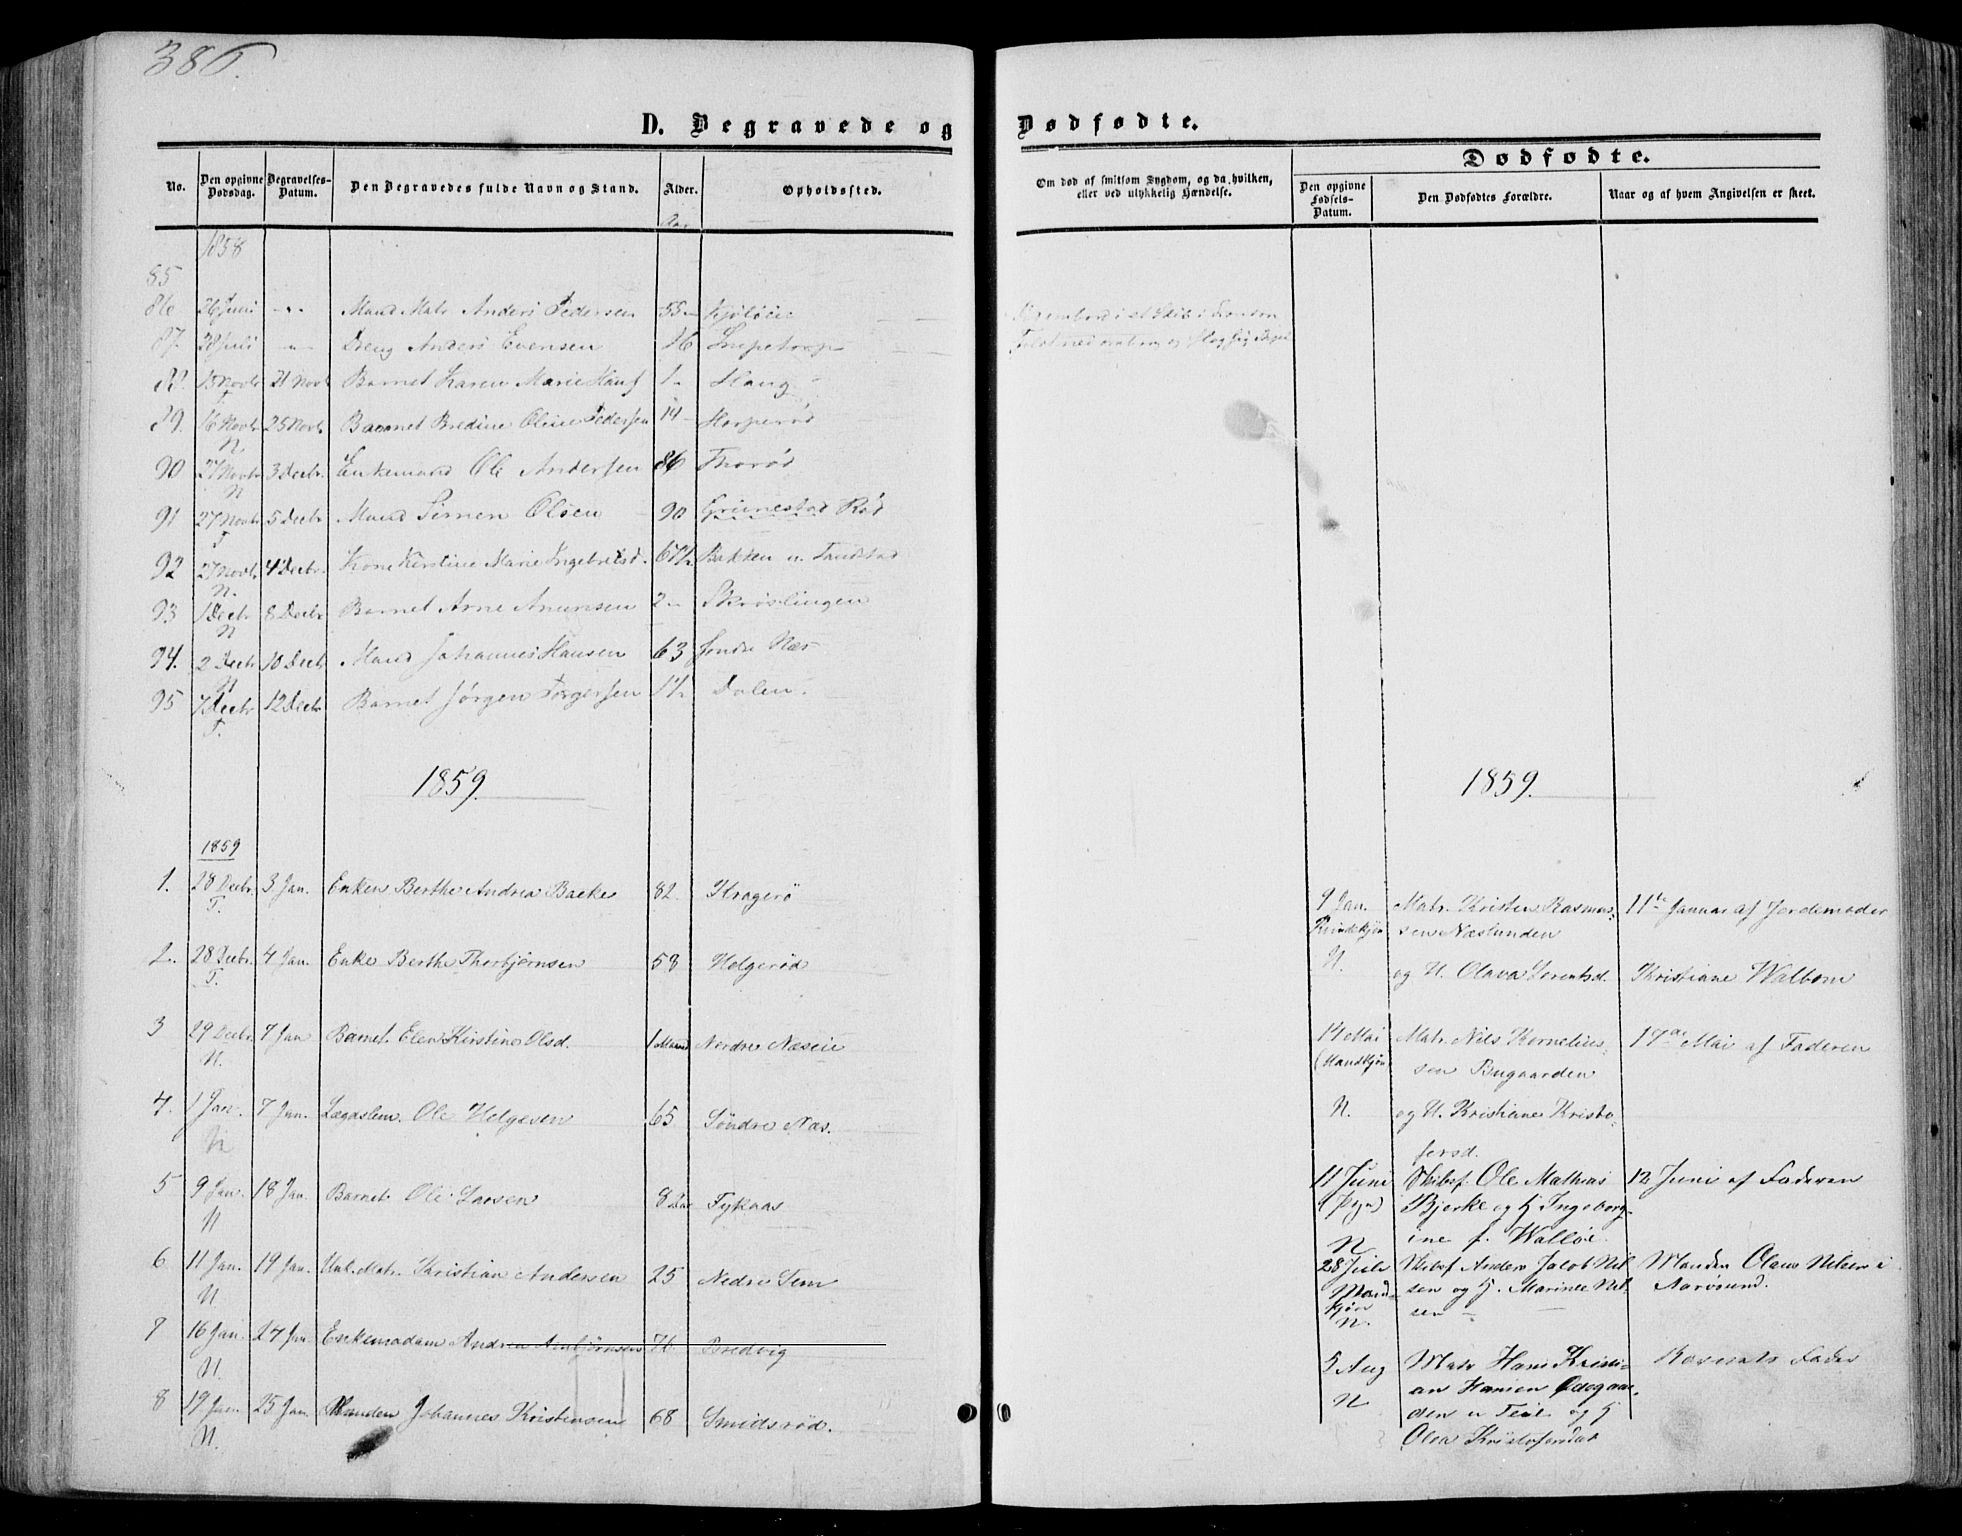 386.
D. Begravede og
No. Den opgivne Dødsdag. Begravelses-Datum. Den Begravedes fulde Navn og Stand. Alder. Opholdssted.
Aar
1858
85
86 26 Juni -"- Mand Matr Anders Pedersen 55 Kjøløie
87. 28 Juli -"- Dreng Anders Evensen 16 Snepetorp
88. 15 Novbr 21 Novb Barnet Karen Marie Hansd 1 Haug
T
89. 16 Novbr 25 Novb Barnet Bredine Oline Pedersen 14 Horperød
N
90 27 Novbr 3 Decbr. Enkemand Ole Andersen 86 Thorød
N
91 27 Novbr 5 Decbr Mand Simen Olsen 90 Grimestad Rød
T
92 27 Novbr 4 Decbr. Kone Kirstine Marie Ingebretsd. 67½ Bakken u. Tandstad
N.
93 1 Decbr 8 Decbr Barnet Arne Amunsen 2 Skrøslingen
N
94. 2 Decbr 10 Decb Mand Johannes Hansen 63 søndre Næs
N
95 7 Decbr 12 Decbr Barnet Jørgen Torgersen 1½ Dalen.
T.
1859
1859
1. 28 Decbr 3 Jan. Enken Berthe Andrea Backe 82. Kragerö
T.
2. 28 Decbr. 4 Jan. Enke Berthe Thorbjørnsen 58 Helgerød
T.
3 29 Decbr 7 Jan Barnet. Elen Kirstine Olsd. 1 Maaned Nordre Næseie
N.
4. 1 Jan. 7 Jan. Lægdslem. Ole Helgesen 65 Søndre Næs.
N
5 9 Jan. 18 Jan. Barnet Ole Larsen 8 Dae Fykaas
N
6 11 Jan. 19 Jan. Unl. Matr. Kristian Andersen 25 Nedre Tem
N.
7 16 Jan. 24 Jan Enkemadam Andrea Arnbjørnsen 76 Bredvig
N.
8 19 Jan. 25 Jan Manden Johannes Kristensen 68 Smidsrød.
N.
Dødfødte.
Om død af smitsom Sygdom, og da hvilken, eller ved ulykkelig Hændelse.
Dødfødte.
Den opgivne Fødsels-Datum. Den Dødfødtes Forældre. Naar og af hvem Angivelsen er skeet.
1859.
9 Jan. Matr. Kristen Rasmus- 11te Januar af Jordemoder
Kvindekjøn sen Næslunden
N. og H. Olava Lorentsd. Kristiane Walbom
14 Mai Matr. Nils Kornelius- 17de Mai af Faderen
(Mandkjøn sen Bugaarden
N. og H. Kristiane Kristo-
fersd.
11 Juni Skibsf. Ole Mathias 12 Juni af Faderen
Bjerke og H Ingeborg-
N ine f. Walløe.
28 Juli Skibsf Anders Jacob Nil- Manden Olaus Nilsen i
Mand- sen og H. Marinle Nil- Aarøsund.
kjøn sen
N.
5 Aug Matr Hans Kristi- Barnets Fader
N an Hansen Ødegaar-
den u Teie og H
Olea Kristofersdat